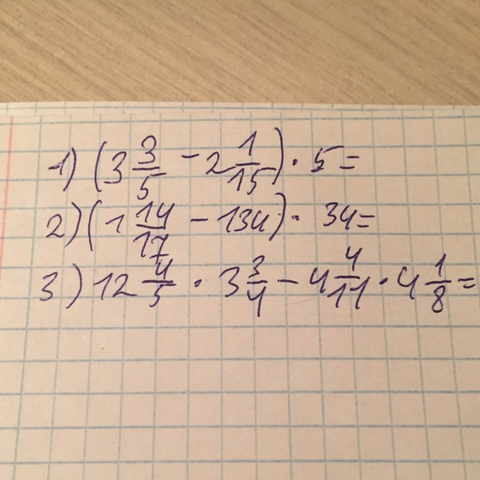 1) (3 3/5 - 2 1/15) · 5 =
2) (1 14/17 - 134) · 34 =
3) 12 4/5 · 3 3/4 - 4 4/11 · 4 1/8 =